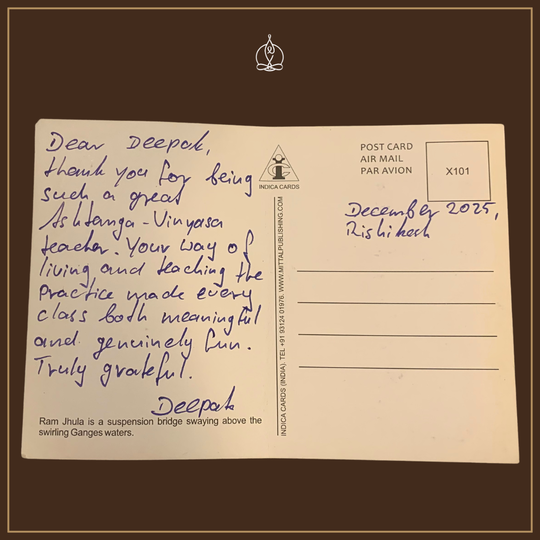 Dear Deepak,
thank you for being
such a great
Ashtanga-Vinyasa
teacher. Your way of
living and teaching the
practice made every
class both meaningful
and genuinely fun.
Truly grateful.
Deepak
Ram Jhula is a suspension bridge swaying above the
swirling Ganges waters.
INDICA CARDS
INDICA CARDS (INDIA). TEL +91 93124 01976. WWW.MITTALPUBLISHING.COM
POST CARD
AIR MAIL
PAR AVION
X101
December 2025,
Rishikesh